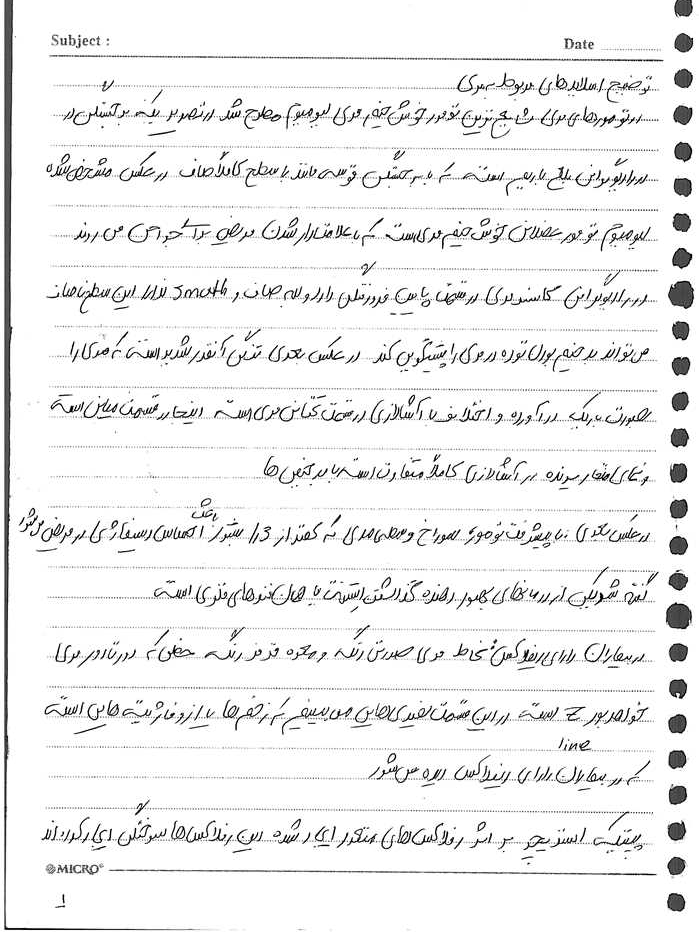 Subject :
Date
توضیح اسلایدهای مربوط به مری
در تومورهای مری شایع ترین تومور خوش خیم مری لیومیوم مطرح شد در تصویر یک برجستگی در
در رادیوگرافی بلع باریم است که با برجستگی قوسی مانند با سطح کاملاً صاف در عکس مشخص شده
لیومیوم تومور عضلانی خوش خیم مری است که با علامتدار شدن مریض برای جراحی می روند
در رادیوگرافی کانسر مری در قسمت پایین فرورفتگی دارد و لبه صاف و smooth ندارد این سطح ناصاف
می تواند بدخیم بودن توده در مری را پیشگویی کند در عکس بعدی تنگی آنقدر شدید است که مری را
بصورت باریک در آورده و اختلاف با آشالازی در قسمت تحتانی مری است اینجا در قسمت میانی است
و نمای منقار پرنده در آشالازی کاملاً متفاوت است با بدخیمی ها
در عکس بعدی با پیشرفت تومور سوراخ وسطی مری که کمتر از 13 بشود باعث احساس دیسفاژی در مریض می شود
گفته شد یکی از درمانهای بهبود دهنده گذاشتن استنت یا همان فنرهای فلزی است
در بیماران دارای ریفلاکس مخاط مری صورتی رنگ و معده قرمز رنگ خطی که دور تا دور مری
خواهد بود Z line است در این قسمت سفیدی هایی می بینیم که زخم ها یا ازوفاژیت هایی است
که در بیماران دارای ریفلاکس دیده می شود
پپتیک استریچر بر اثر رفلاکس های متعدد ایجاد شده این رفلاکس ها سوختگی ایجاد کرده اند
MICRO
۱